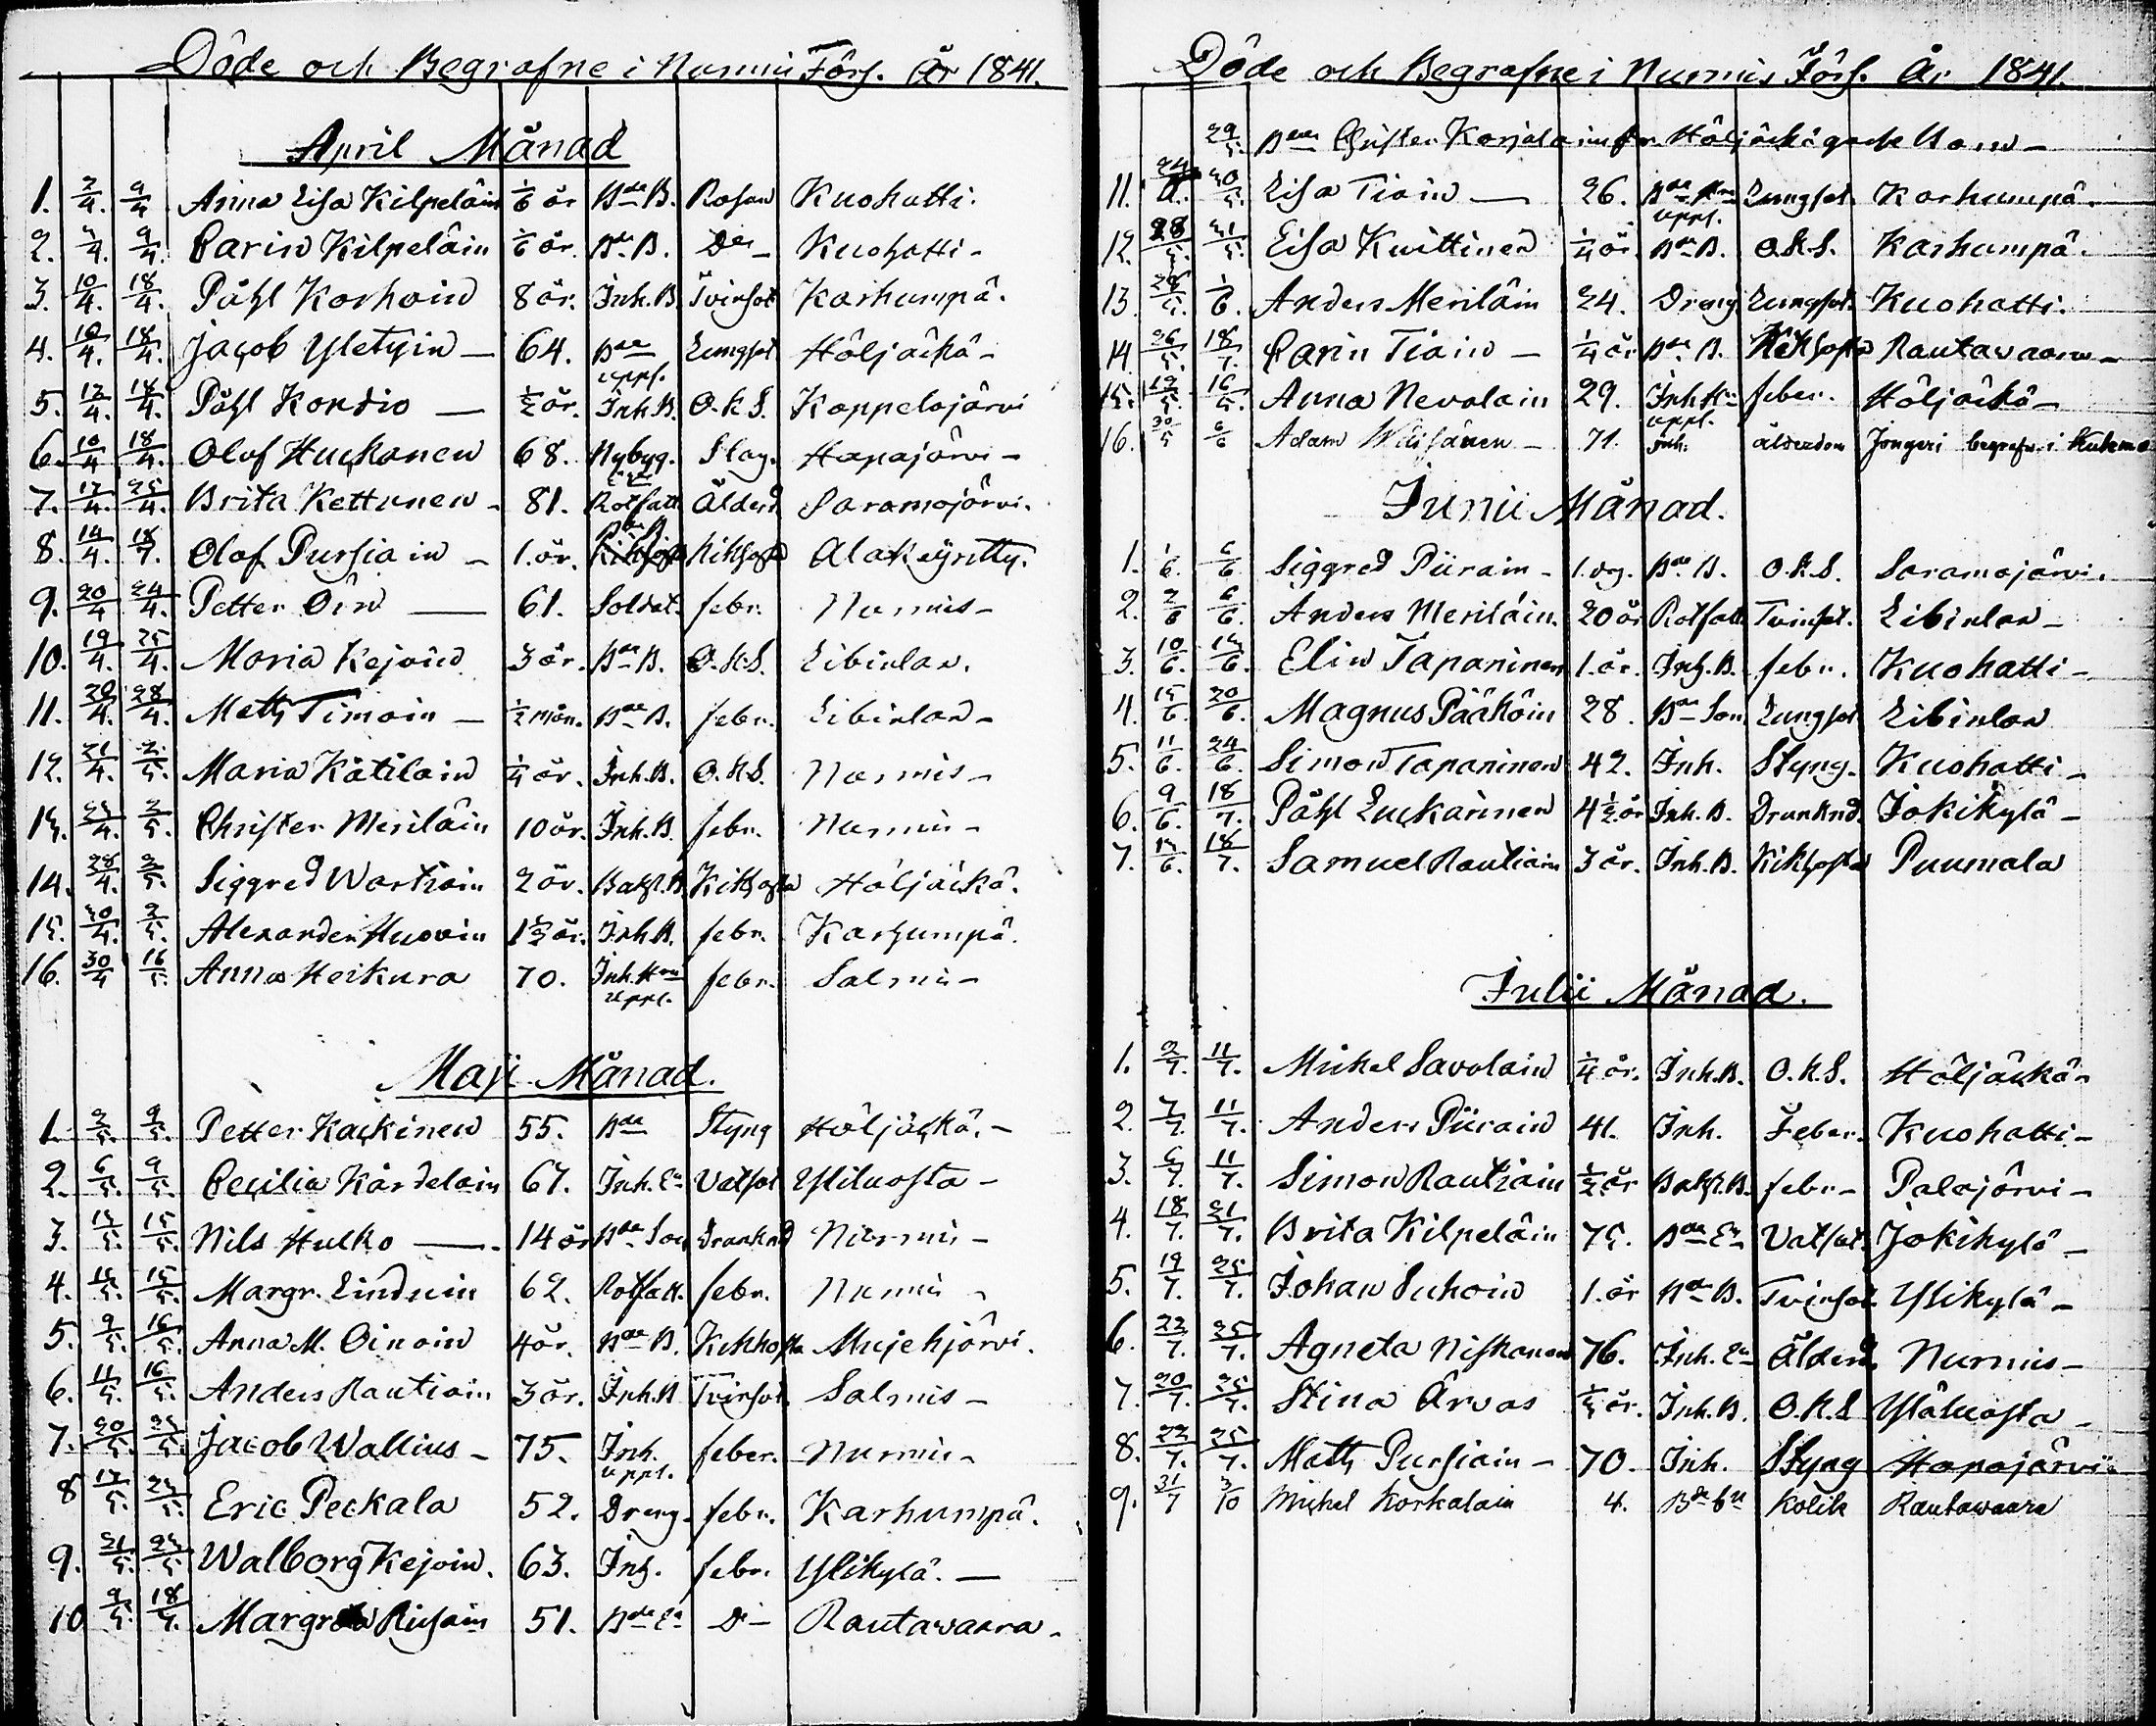 Döde och Begrafne i Nurmis Förs. År 1841.
April Månad
1. 2/4. 9/4 Anna Lisa Kilpeläin 1/6 år Bde B. Rosen Kuohatti.
2. 4/4. 9/4. Carin Kilpeläin 1/6 år. Bde B. Do Kuohatti -
3. 10/4. 18/4. Påhl Korhoin 8 år. Inh. B. Tvinsot Karhumpä.
4. 10/4. 18/4. Jacob Yletyin - 64. Bde uppl. Lungsot Höljäckä -
5. 12/4. 18/4. Påhl Kondio - 1/2 år. Inh. B. O.k.S. Koppelojärvi
6. 10/4 18/4. Olof Huckanen 68. Nybyg. Slag. Hapajärvi -
7. 17/4. 25/4. Brita Kettunen - 81. Rotfatt Ålderd. Saramojärvi.
8. 14/4. 18/7. Olof Pursiain - 1. år. Bde B Kikhosta Alakeyritty.
9. 20/4 24/4. Petter Öin - 61. Soldat. febr. Nurmis -
10. 19/4. 25/4. Maria Kejoin 3 år. Bde B. O.k.S. Libinlax.
11. 20/4. 28/4. Matts Timoin - 1/2 mån. Bde B. febr. Libinlax -
12. 21/4. 2/5. Maria Kätilain 1/4 år. Inh. B. O.k.S. Nurmis -
13. 2/5. Christer Meriläin 10 år. Inh. B. febr. Nurmis -
14. 28/4. 2/5. Siggred Wartiain 2 år. Kikhosta Höljäckä.
15. 30/4. 2/5. Alexander Huovin 1 1/2 år. Inh. B. febr. Karhumpä.
16. 30/4 16/5. Anna Heikura 70. Inh. Hru uppl. febr. Salmis -
Maji Månad.
1. 2/5. 9/5. Petter Kackinen 55. Bde Styng Höljäckä. -
2. 6/5. 9/5. Cecilia Kärdelain 67. Inh. En Vatsot Ylikuosta -
3. 15/5. Nils Hulko - 14 år Bde Son Drunknd Nurmis -
4. 15/5. Margr. Lindvin 62. Rotfatt. febr. Nurmis -
5. 9/5. 16/5. Anna M. Oinoin 4 år. Bde B. Kikhosta Mujehjärvi.
6. 11/5. 16/5. Anders Rautiain 3 år. Inh. B Tvinsot. Salmis -
7. 20/5. Jacob Wallius - 75. Inh. uppl. feber. Nurmis -
8 17/5. 23/5. Eric Peckala 52. Dreng. febr. Karhumpä.
9. 21/5. 23/5 Walborg Kejoin. 63. Inh. febr. Ylikylä. -
10 9/5. 18/7. Margreta 51. Bde En Do Rautawaara -
Döde och Begrafne i Nurmis Förs. År 1841.
29/5. Christer Karjalain fr. Höljäckä
11. 30/5. Lisa Tiain - 26. Bde uppl. Lungsot. Karhumpä.
12. 28/5. 31/5. Lisa Kuittinen 1/4 år. Bde B. O.k.S. Karhumpä.
13. 28/5. 1/6. Anders Meriläin 24. Dreng Lungsot. Kuohatti.
14. 26/5. 18/7. Carin Tiain - 1/4 år Bde B. Kikhosta Rautawaara -
15. 12/5. 16/5. Anna Nevalain 29. Inh. Hru uppl. feber. Höljäckä -
16. 30/5 6/6 Adam Wäisänen - 71. Inh. ålderdom Jongeri begrafn i Kuhmo
Junii Månad.
1. 1/6. 6/6 Siggred Piirain - 1. dag. Bde B. O.k.S. Saramojärvi.
2. 2/6 6/6. Anders Meriläin. 20 år Rotfatt Tvinsot. Libinlax -
3. 10/6. 13/6. Elin Tapaninen 1. år. Inh. B. febr. Kuohatti -
4. 15/6. 20/6. Magnus Pääköin 28. Bde Son Lungsot Libinlax
5. 11/6. 24/6. Simon Tapaninen 42. Inh. Styng. Kuohatti -
6. 9/6. 18/7. Påhl Luckarinen 4 1/2 år Inh. B. Drunknd. Jokikylä -
7. 13/6. 18/7. Samuel Rautiain 3 år. Inh. B. Kikhosta Puumala
Julii Månad.
1. 2/7. 11/7. Michel Savolain 1/4 år. Inh. B. O.k.S. Höljäckä -
2. 7/7. 11/7. Anders Piirain 41. Inh. Feber. Kuohatti -
3. 6/7. 11/7. Simon Rautiain 1/2 år febr. - Palojärvi -
4. 18/7. 21/7. Brita Kilpeläin 75. Bde En Vatsot. Jokikylä -
5. 19/7. 25/7. Johan Suhoin 1. år Bde B. Tvinsot. Ylikylä -
6. 22/7. 25/7. Agneta Niskanen 76. Inh. En Ålderd. Nurmis -
7. 20/7. 25/7. Stina Ärvas Inh. B. O.k.S
8. 22/7. 25/7. Matts Pursiain - 70. Inh. Styng Hapajärvi -
9. 31/7 3/10 Michel Korkalain 4. Bde bn Kolik Rautawaara